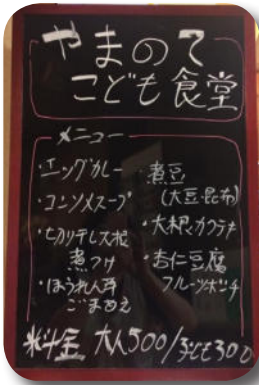 やまのて
こども食堂
メニュー
・エッグカレー
・コンソメスープ
・切り干し大根
煮つけ
・ほうれん草
ごまあえ
・煮豆
(大豆・昆布)
・大根とカブラキ
・杏仁豆腐
フルーツポンチ
料金 大人500/子ども300